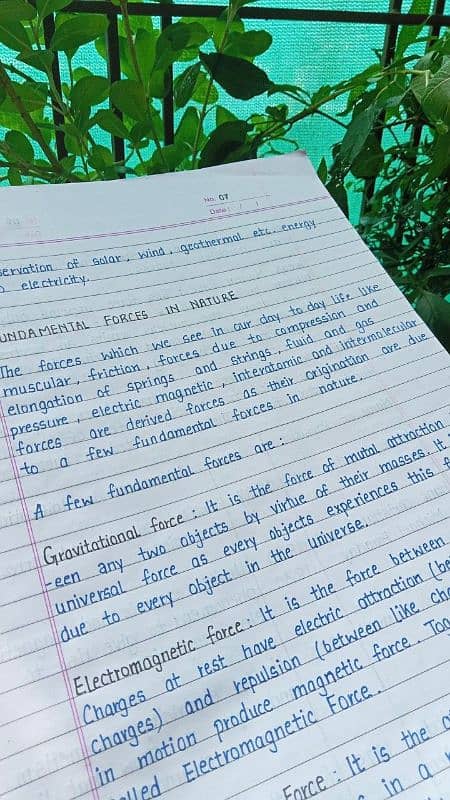 No. 07
Date: / /
servation of solar, wind, geothermal etc. energy
o electricity.
UNDAMENTAL FORCES IN NATURE
The forces which we see in our day to day life like
muscular, friction, forces due to compression and
elongation of springs and strings, fluid and gas
pressure, electric magnetic, interatomic and intermolecular
forces are derived forces as their origination are due
to a few fundamental forces in nature.
A few fundamental forces are:
Gravitational force: It is the force of mutal attraction
-een any two objects by virtue of their masses. It
universal force as every objects experiences this f
due to every object in the universe.
Electromagnetic force: It is the force between
Charges at rest have electric attraction (be
charges) and repulsion (between like cha
in motion produce magnetic force. Tog
lled Electromagnetic Force.
Force: It is the
in a